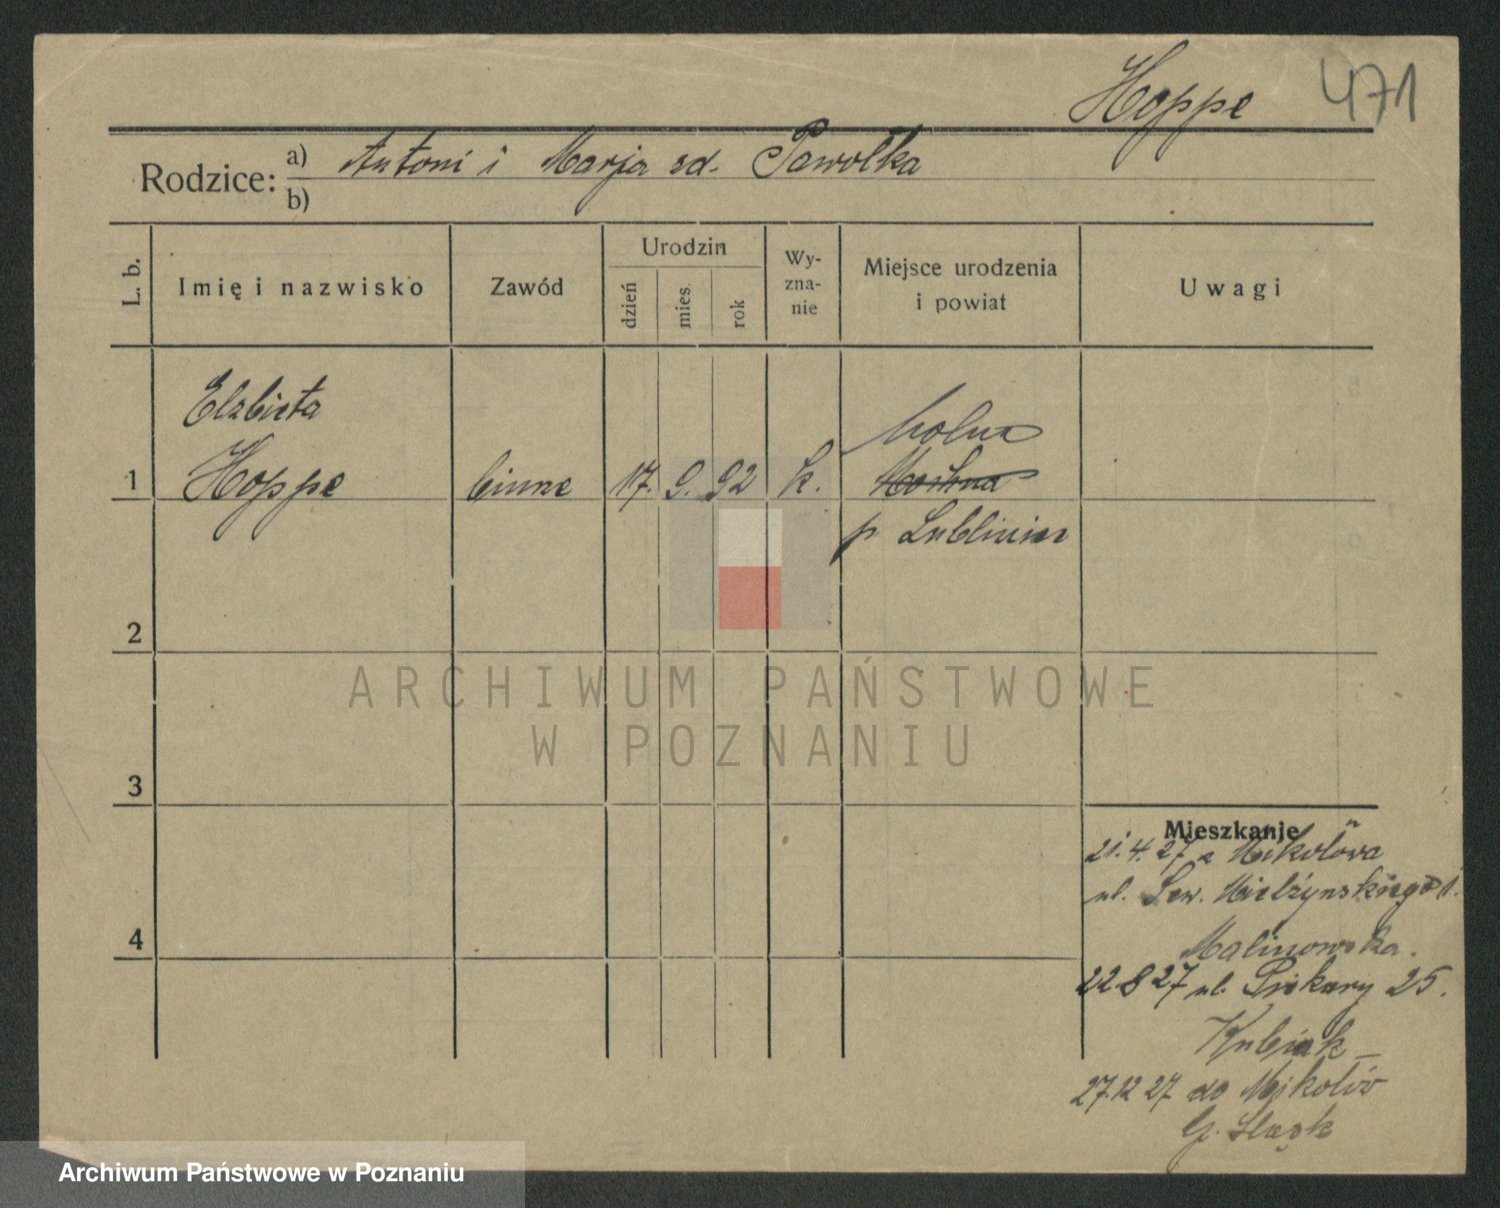 Hoppe 471
Rodzice: a) Antoni i Marja zd. Pawołka
b)
L. b. Imię i nazwisko Zawód Urodzin dzień mies. rok Wyznanie Miejsce urodzenia i powiat Uwagi
Elzbieta
1 Hoppe 17. 9. 92 k.
p Lubliniec
2
ARCHIWUM PAŃSTWOWE
W POZNANIU
3
Mieszkanie
21.4.27 z Mikołowa
ul. Sew. Mielżynskiego 1.
4
Malinowska.
22 8 27 ul. Piekary 25.
Kubiak
27.12 27 do Mikołów
G. Sląsk
Archiwum Państwowe w Poznaniu